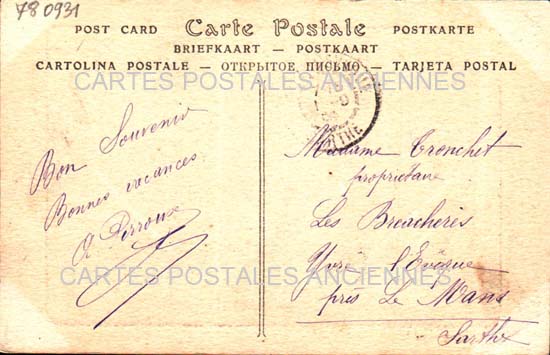 780931
POST CARD Carte Postale POSTKARTE
BRIEFKAART — POSTKAART
CARTOLINA POSTALE — ОТКРЫТОЕ ПИСЬМО — TARJETA POSTAL
CARTES POSTALES ANCIENNES
Bon Souvenir
Bonnes vacances
A Perroux
Madame Tronchet
propriétaire
Les Breacheres
Yvré l'Evêque
près Le Mans
Sarthe
CARTES POSTALES ANCIENNES